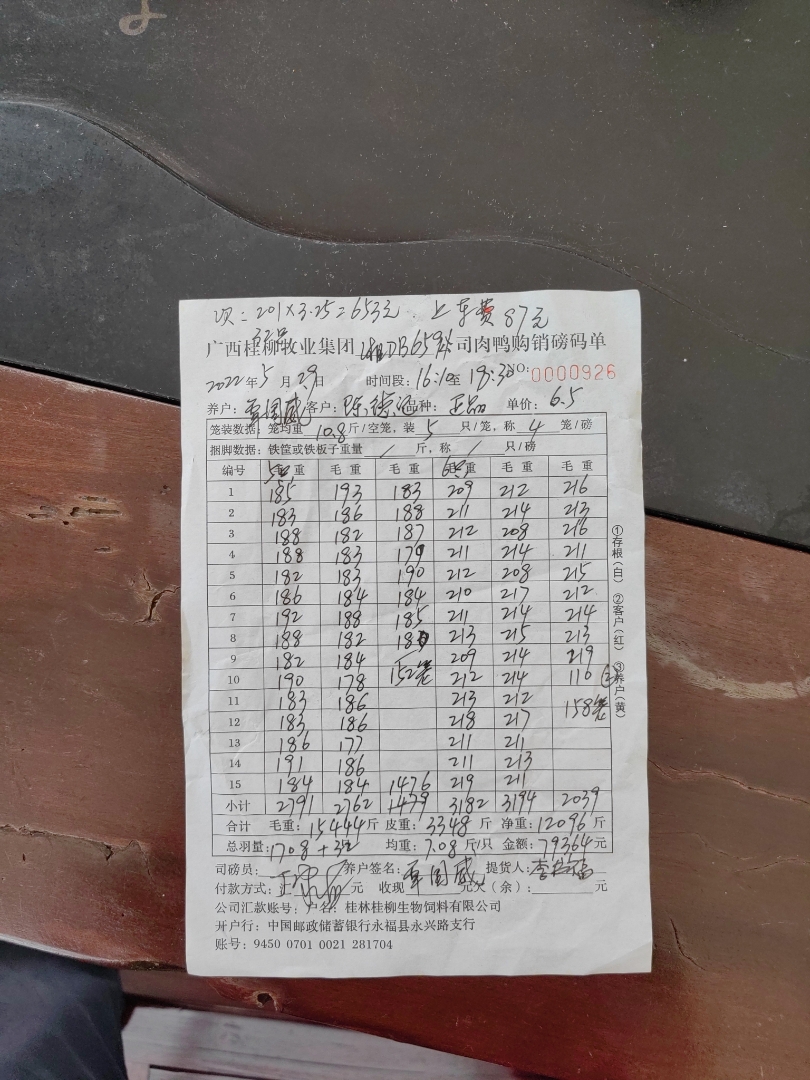 次：201×3.25＝653元. 上车费87元
广西桂柳牧业集团 公司肉鸭购销磅码单
2022年5月29日 时间段：16:10至18:30 NO: 0000926
养户： 客户： 品种：正品 单价：6.5
笼装数据：笼均重10.8斤/空笼，装5只/笼，称4笼/磅
捆脚数据：铁筐或铁板子重量/斤，称/只/磅
编号 毛重 毛重 毛重 毛重 毛重 毛重
1 185 193 183 209 212 216
2 183 186 188 211 214 213
3 188 182 187 212 208 216
4 188 183 179 211 214 211
5 182 183 190 212 208 215
6 186 184 184 210 217 212
7 192 188 185 211 214 214
8 188 182 180 213 215 213
9 182 184 152笼 209 214 219
10 190 178 212 214 110 ②
11 183 186 213 212 158笼
12 183 186 218 217
13 186 177 211 211
14 191 186 211 213
15 184 184 1476 219 211
小计 2791 2762 1479 3182 3194 2039
合计 毛重：15444斤 皮重：3348斤 净重：12096斤
总羽量：1708 均重：7.08斤/只 金额：79364元
司磅员： 养户签名：覃国威 提货人：
付款方式： 收现 元 欠（余）： 元
公司汇款账号：户名：桂林桂柳生物饲料有限公司
开户行：中国邮政储蓄银行永福县永兴路支行
账号：9450 0701 0021 281704
①存根（白） ②客户（红） ③养户（黄）